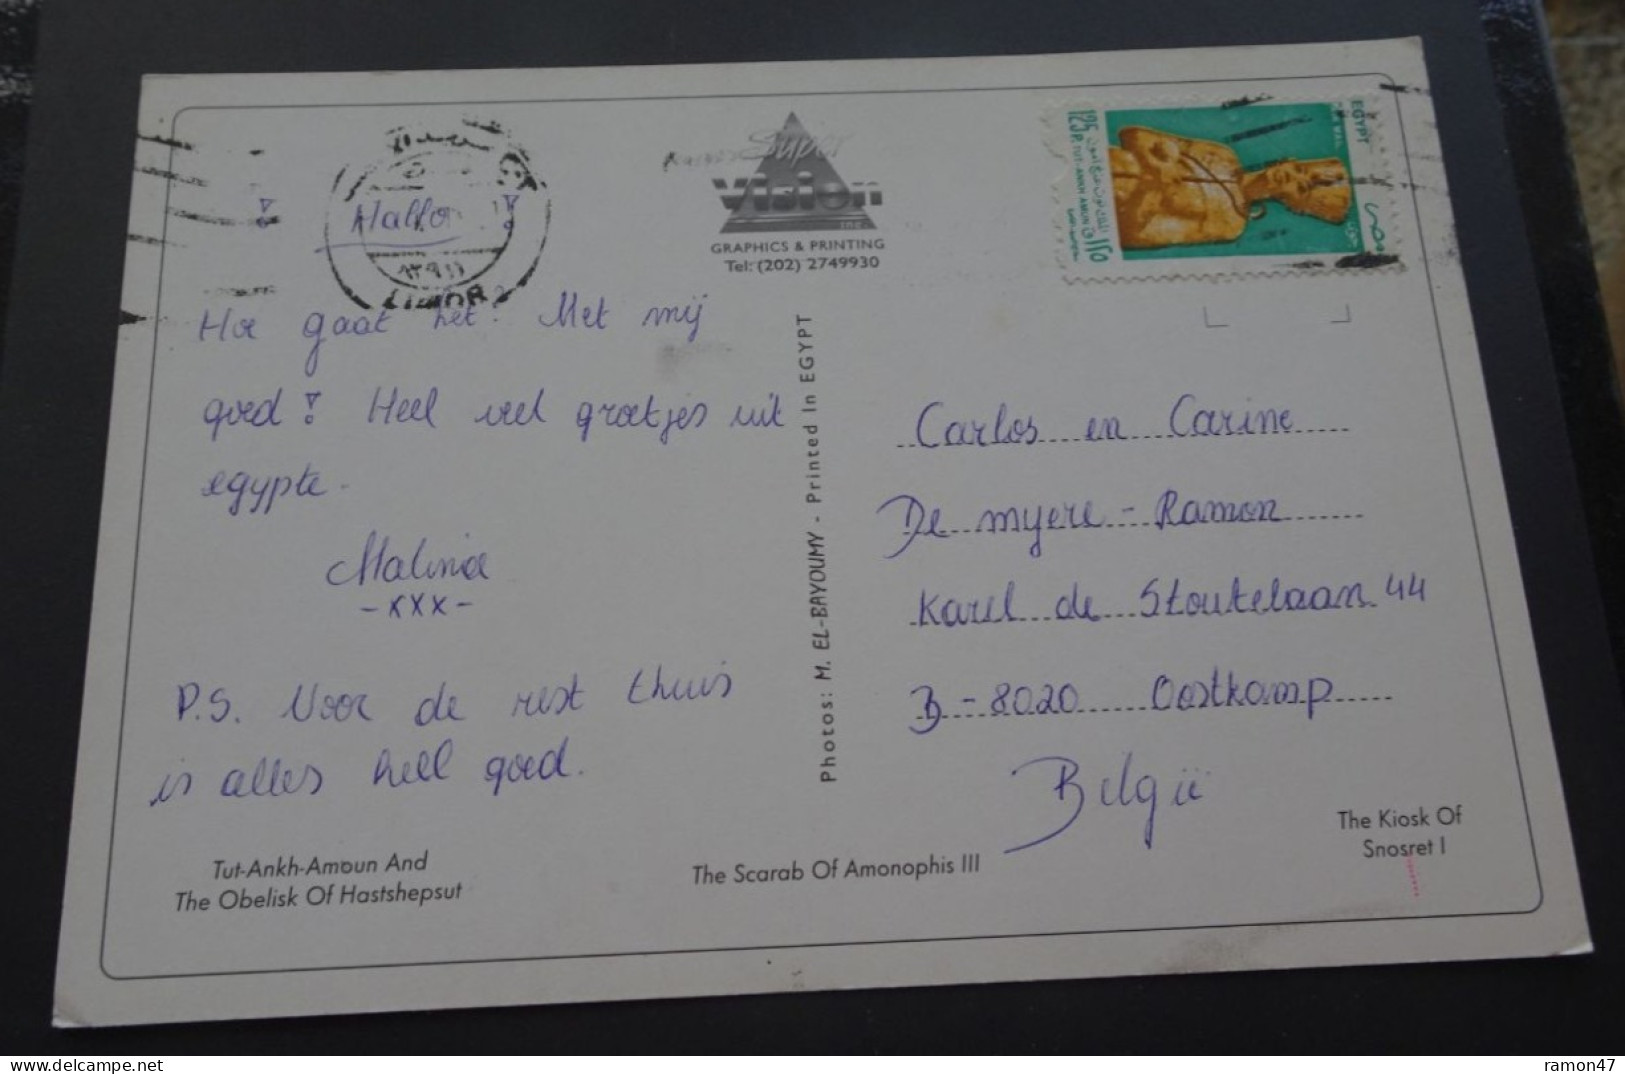 Hallo
Hoe gaat het? Met mij
goed! Heel veel groetjes uit
egypte.
Malina
-xxx-
P.S. Voor de rest thuis
is alles heel goed.
Tut-Ankh-Amoun And
The Obelisk Of Hastshepsut
Super
Vision
INC.
GRAPHICS & PRINTING
Tel: (202) 2749930
Photos: M. EL-BAYOUMY - Printed In EGYPT
The Scarab Of Amonophis III
EGYPT
مصر
125 P. TUT-ANKH AMUN
LUXOR
Carlos en Carine
De myere - Ramon
Karel de Stoutelaan 44
B-8020 Oostkamp
België
The Kiosk Of
Snosret I
ramon47